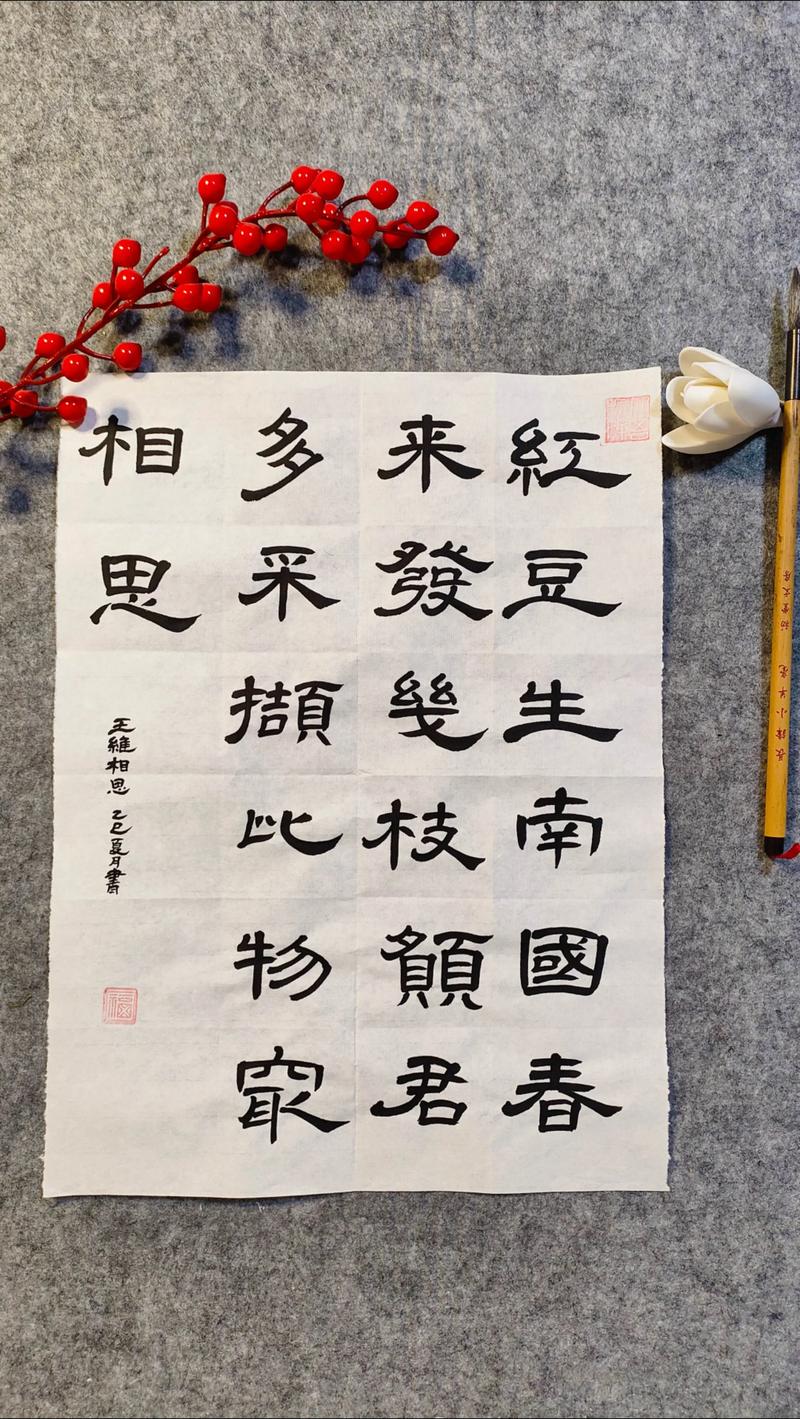 紅豆生南國春
来發幾枝願君
多采擷此物冣
相思
王維相思 乙巳夏月書
福